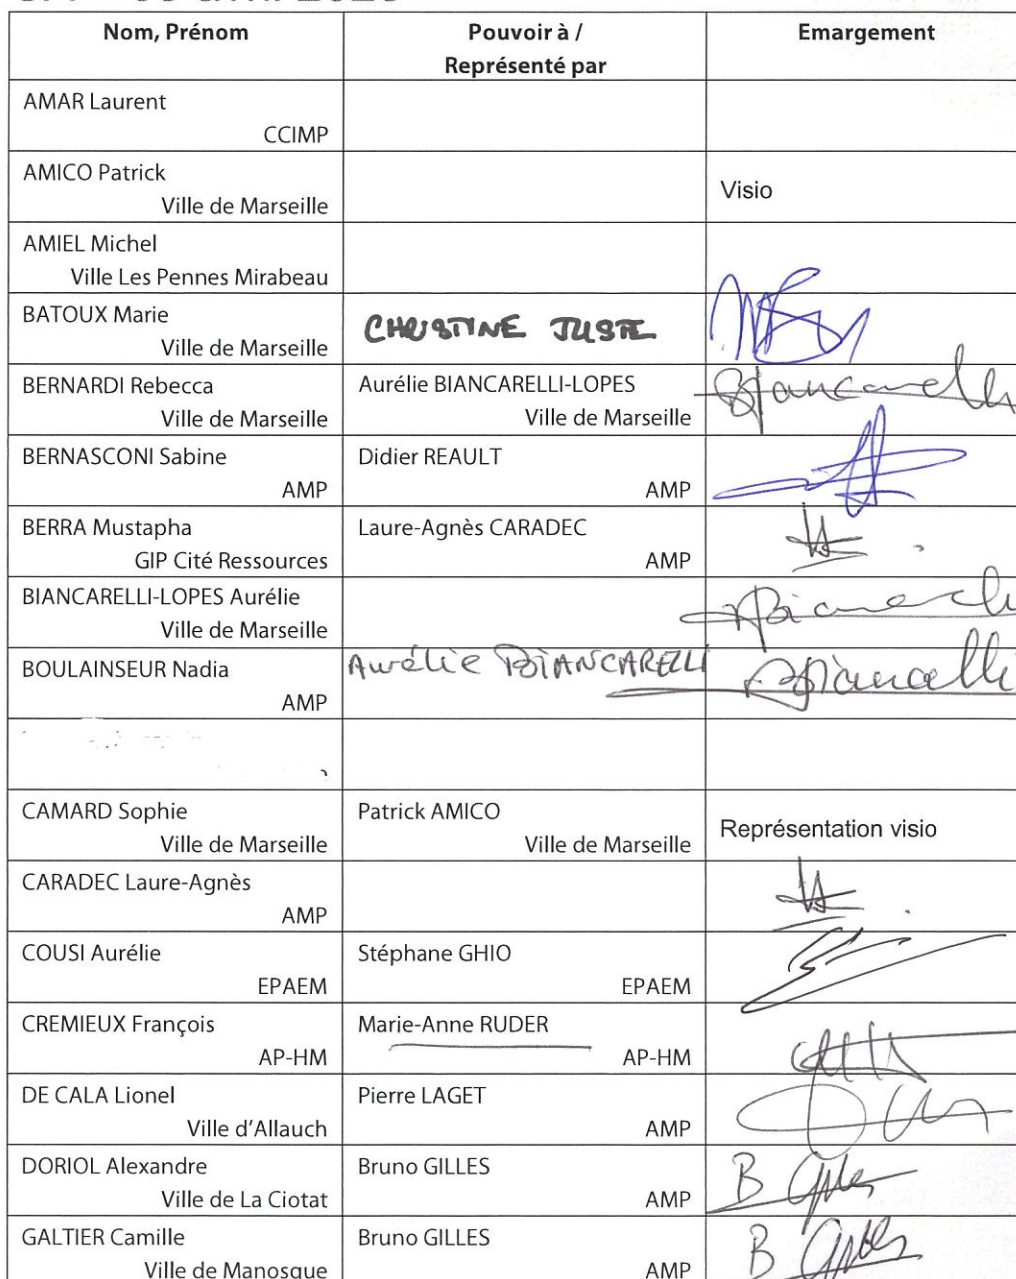 Nom, Prénom
Pouvoir à /
Représenté par
Emargement
AMAR Laurent
CCIMP
AMICO Patrick
Ville de Marseille
Visio
AMIEL Michel
Ville Les Pennes Mirabeau
BATOUX Marie
Ville de Marseille
CHRISTINE JUSTE
BERNARDI Rebecca
Ville de Marseille
Aurélie BIANCARELLI-LOPES
Ville de Marseille
Biancarelli
BERNASCONI Sabine
AMP
Didier REAULT
AMP
BERRA Mustapha
GIP Cité Ressources
Laure-Agnès CARADEC
AMP
BIANCARELLI-LOPES Aurélie
Ville de Marseille
BOULAINSEUR Nadia
AMP
Aurélie BIANCARELLI
CAMARD Sophie
Ville de Marseille
Patrick AMICO
Ville de Marseille
Représentation visio
CARADEC Laure-Agnès
AMP
COUSI Aurélie
EPAEM
Stéphane GHIO
EPAEM
CREMIEUX François
AP-HM
Marie-Anne RUDER
AP-HM
DE CALA Lionel
Ville d'Allauch
Pierre LAGET
AMP
DORIOL Alexandre
Ville de La Ciotat
Bruno GILLES
AMP
B Gilles
GALTIER Camille
Ville de Manosque
Bruno GILLES
AMP
B Gilles